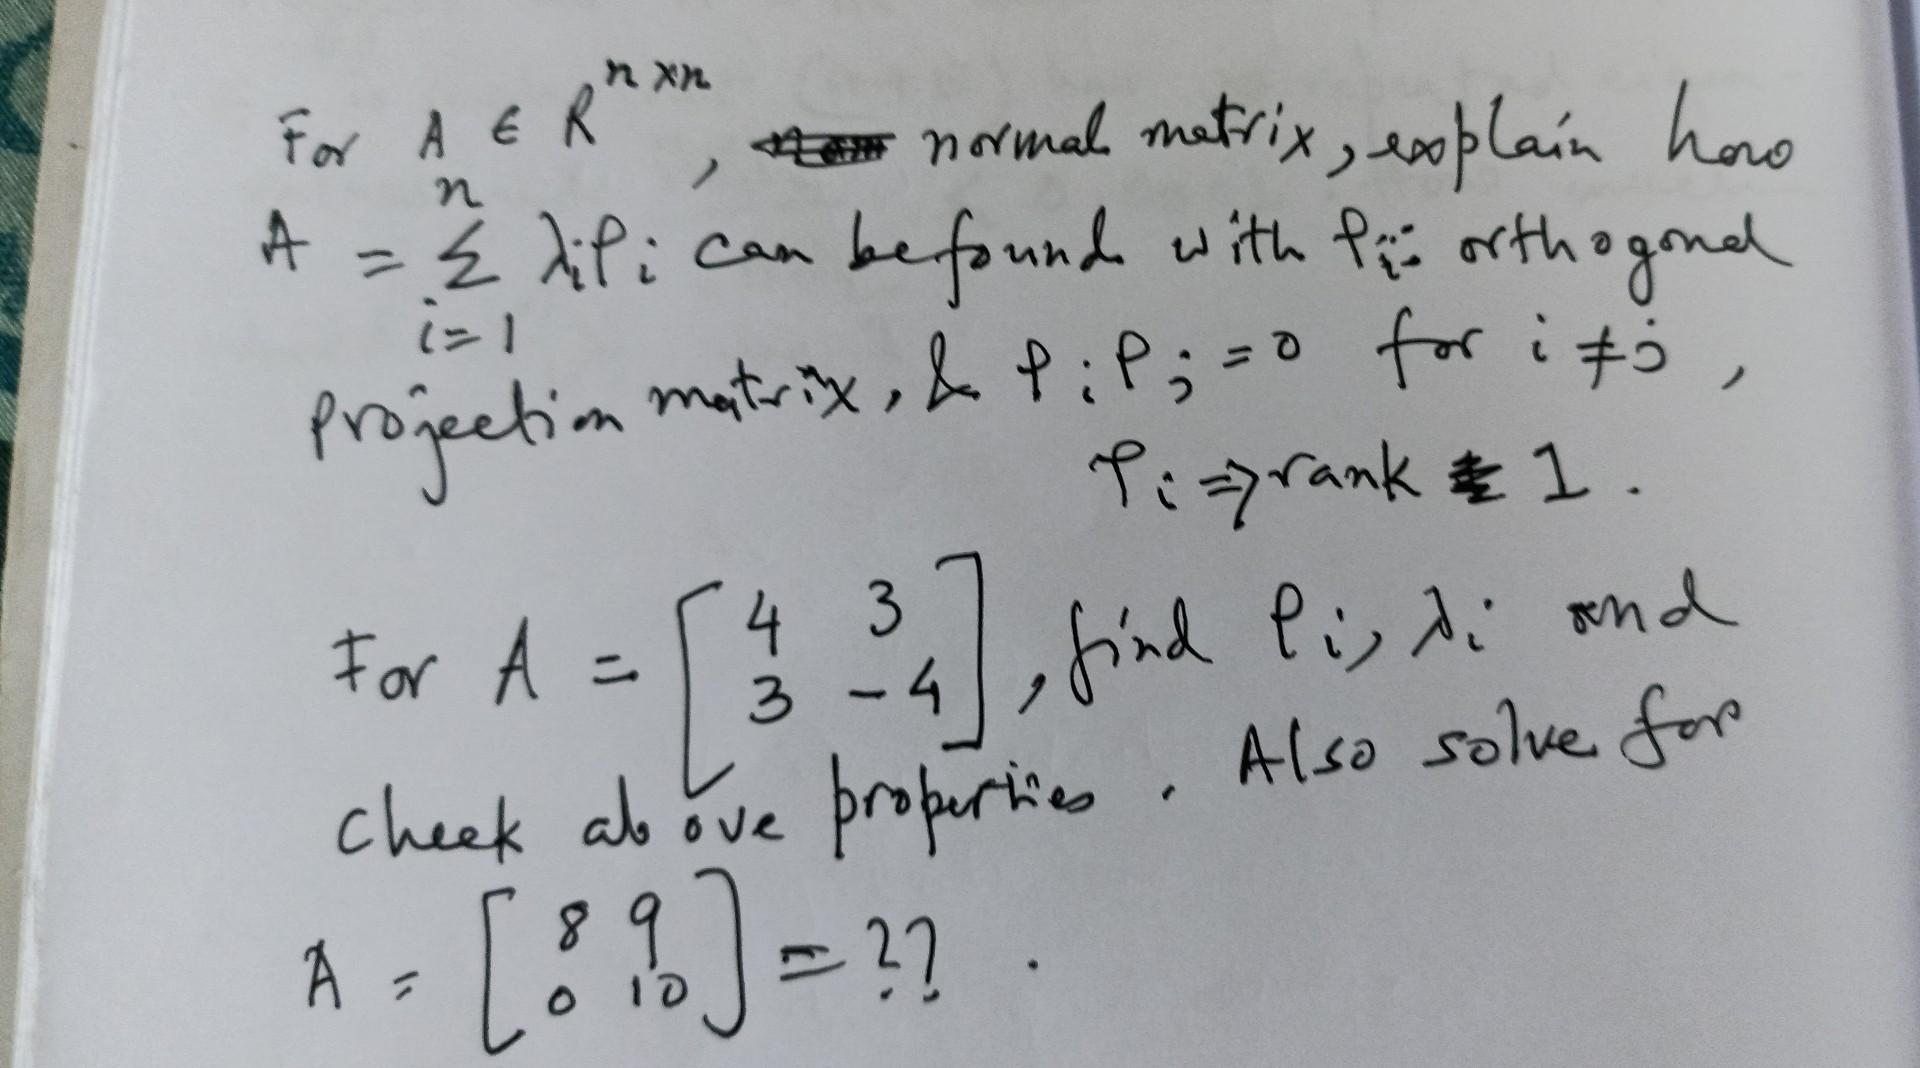 For A ∈ R^{n×n}, normal matrix, explain how
A = \sum_{i=1}^{n} λ_i P_i can be found with P_i: orthogonal
projection matrix, & P_i P_j = 0 for i ≠ j,
P_i ⇒ rank 1.
For A = [4 3; 3 -4], find P_i, λ_i and
check above properties. Also solve for
A = [8 9; 0 10] = ??.